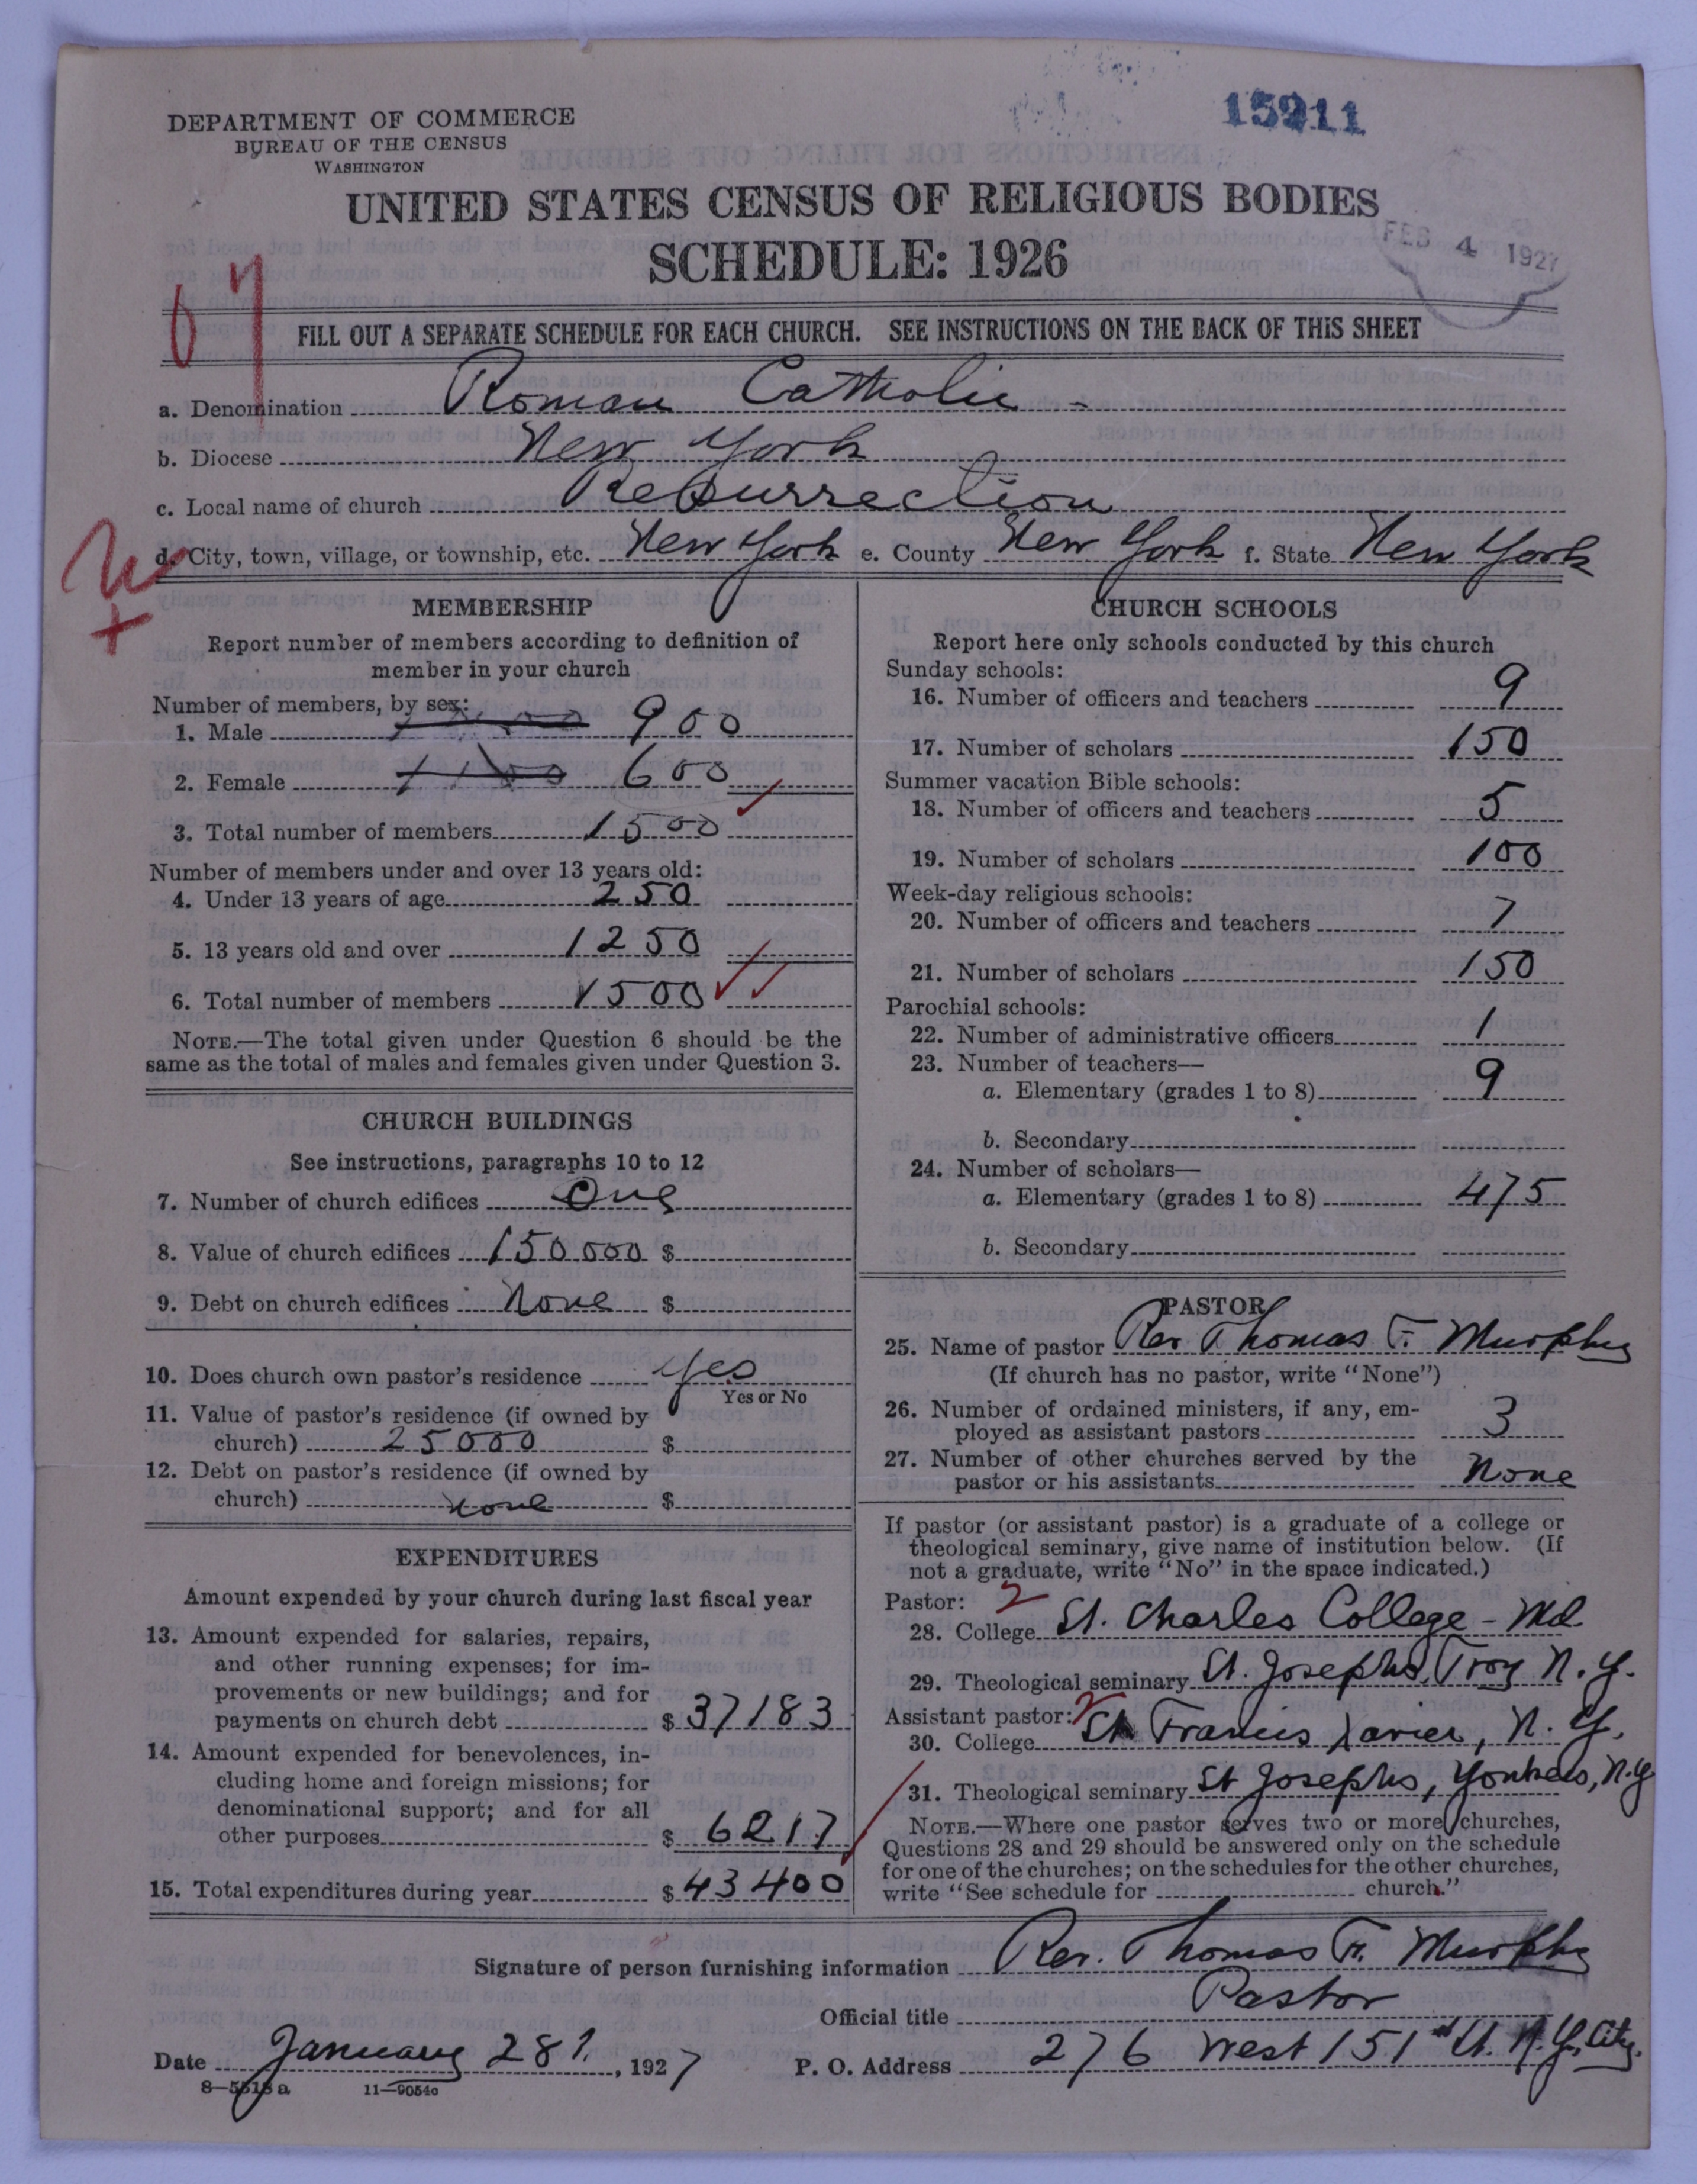 15911
DEPARTMENT OF COMMERCE
BUREAU OF THE CENSUS
WASHINGTON
UNITED STATES CENSUS OF RELIGIOUS BODIES
SCHEDULE: 1926
FEB 4 1927
FILL OUT A SEPARATE SCHEDULE FOR EACH CHURCH. SEE INSTRUCTIONS ON THE BACK OF THIS SHEET
a. Denomination Roman Catholic -
b. Diocese New York
c. Local name of church Resurrection
d. City, town, village, or township, etc. New York e. County New York f. State New York
MEMBERSHIP
Report number of members according to definition of
member in your church
Number of members, by sex:
1. Male 900
2. Female 600
3. Total number of members 1500
Number of members under and over 13 years old:
4. Under 13 years of age 250
5. 13 years old and over 1250
6. Total number of members 1500
NOTE.—The total given under Question 6 should be the
same as the total of males and females given under Question 3.
CHURCH BUILDINGS
See instructions, paragraphs 10 to 12
7. Number of church edifices One
8. Value of church edifices 150000 $
9. Debt on church edifices None $
10. Does church own pastor's residence Yes
Yes or No
11. Value of pastor's residence (if owned by
church) 25000 $
12. Debt on pastor's residence (if owned by
church) none $
EXPENDITURES
Amount expended by your church during last fiscal year
13. Amount expended for salaries, repairs,
and other running expenses; for im-
provements or new buildings; and for
payments on church debt $ 37183
14. Amount expended for benevolences, in-
cluding home and foreign missions; for
denominational support; and for all
other purposes $ 6217
15. Total expenditures during year $ 43400
CHURCH SCHOOLS
Report here only schools conducted by this church
Sunday schools:
16. Number of officers and teachers 9
17. Number of scholars 150
Summer vacation Bible schools:
18. Number of officers and teachers 5
19. Number of scholars 100
Week-day religious schools:
20. Number of officers and teachers 7
21. Number of scholars 150
Parochial schools:
22. Number of administrative officers 1
23. Number of teachers—
a. Elementary (grades 1 to 8) 9
b. Secondary
24. Number of scholars—
a. Elementary (grades 1 to 8) 475
b. Secondary
PASTOR
25. Name of pastor Rev Thomas F. Murphy
(If church has no pastor, write "None")
26. Number of ordained ministers, if any, em-
ployed as assistant pastors 3
27. Number of other churches served by the
pastor or his assistants None
If pastor (or assistant pastor) is a graduate of a college or
theological seminary, give name of institution below. (If
not a graduate, write "No" in the space indicated.)
Pastor: 2
28. College St. Charles College - Md.
29. Theological seminary St. Josephs, Troy N.Y.
Assistant pastor: 2
30. College St Francis Xavier, N.Y.
31. Theological seminary St Josephs, Yonkers, N.Y
NOTE.—Where one pastor serves two or more churches,
Questions 28 and 29 should be answered only on the schedule
for one of the churches; on the schedules for the other churches,
write "See schedule for church."
Signature of person furnishing information Rev. Thomas F. Murphy
Official title Pastor
Date January 28, 1927 P. O. Address 276 West 151st St. N.Y. City.
8—5518 a 11—9054c